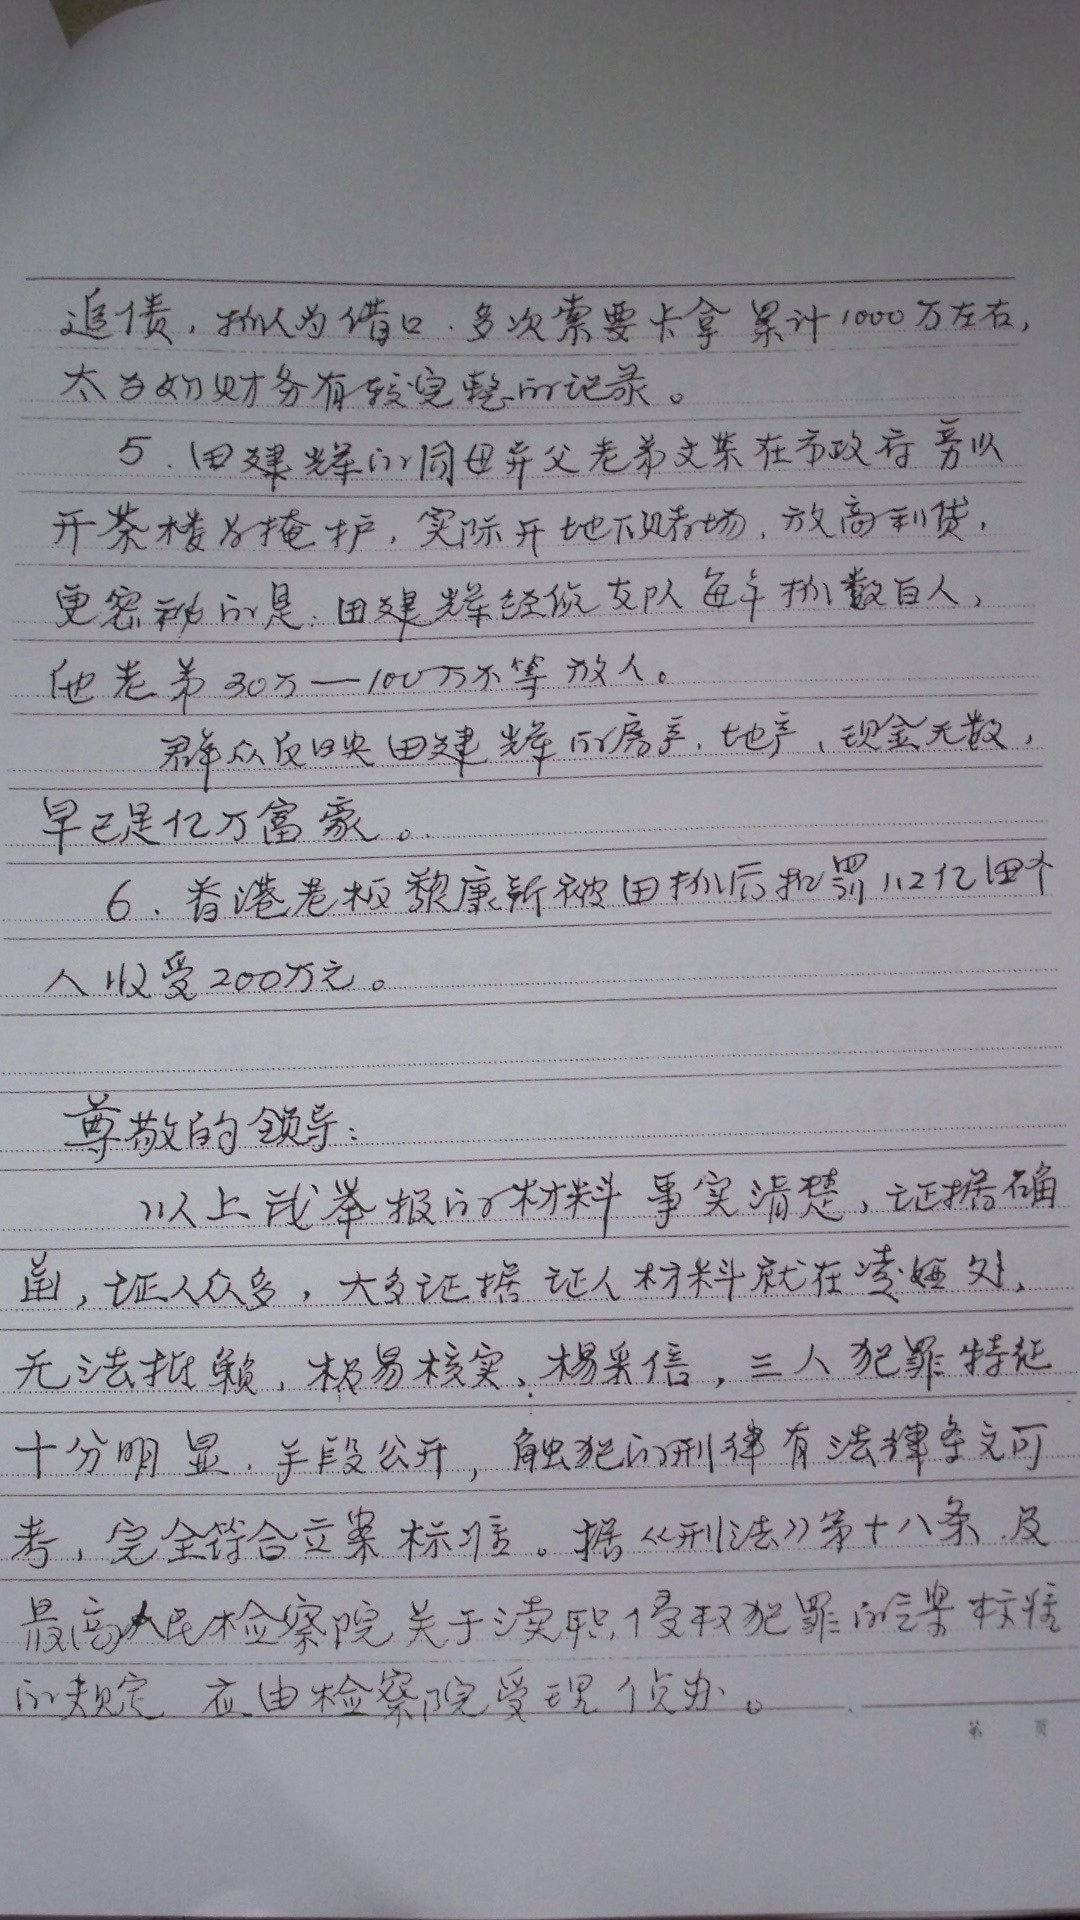 追债，抓人为借口．多次索要卡拿累计1000万左右，
太子奶财务有较完整的记录。
5．田建辉的同母异父老弟文某在市政府旁以
开茶楼为掩护，实际开地下赌场，放高利贷，
更密秘的是：田建辉经侦支队每年抓数百人，
他老弟30万—100万不等放人。
群众反映田建辉的房产、地产、现金无数，
早已是亿万富豪。
6．香港老板黎康新被田抓后扣罚1.2亿田个
人收受200万元。
尊敬的领导：
以上我举报的材料事实清楚，证据确
凿，证人众多，大多证据证人材料就在凌娅处，
无法抵赖，极易核实、易采信，三人犯罪特征
十分明显．手段公开，触犯的刑律有法律条文可
考，完全符合立案标准。据《刑法》第十八条及
最高人民检察院关于渎职，侵权犯罪的立案标准
的规定应由检察院受理侦办。
第 页